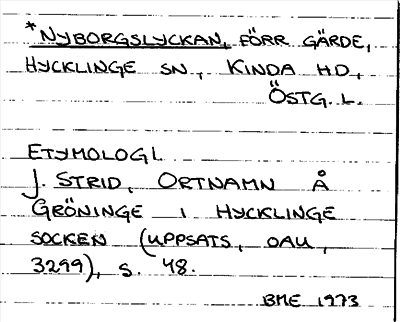 *NYBORGSLYCKAN, FÖRR GÄRDE,
HYCKLINGE SN, KINDA HD,
ÖSTG. L.
ETYMOLOGI
J. STRID, ORTNAMN Å
GRÖNINGE I HYCKLINGE
SOCKEN (UPPSATS, OAU,
3299), S. 48.
BME 1973